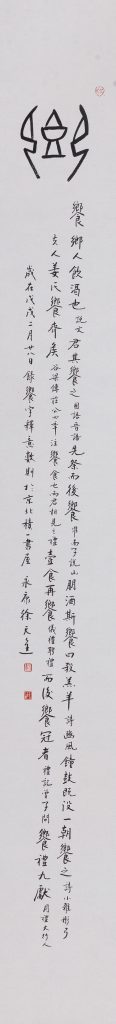 饗 鄉人飲酒也 說文 君其饗之 國語晉語 先祭而後饗 淮南子說山 朋酒斯饗曰殺羔羊 詩豳風 鐘鼓既設一朝饗之 詩小雅彤弓
夫人姜氏饗齊侯 谷梁傳莊公四年注 饗食也兩君相見之禮 壹食再饗 儀禮聘禮 而後饗冠者 禮記曾子問 饗禮九獻 周禮大行人
歲在戊戌二月廿八日錄饗字釋意數則於京北積一書屋 永康徐天進